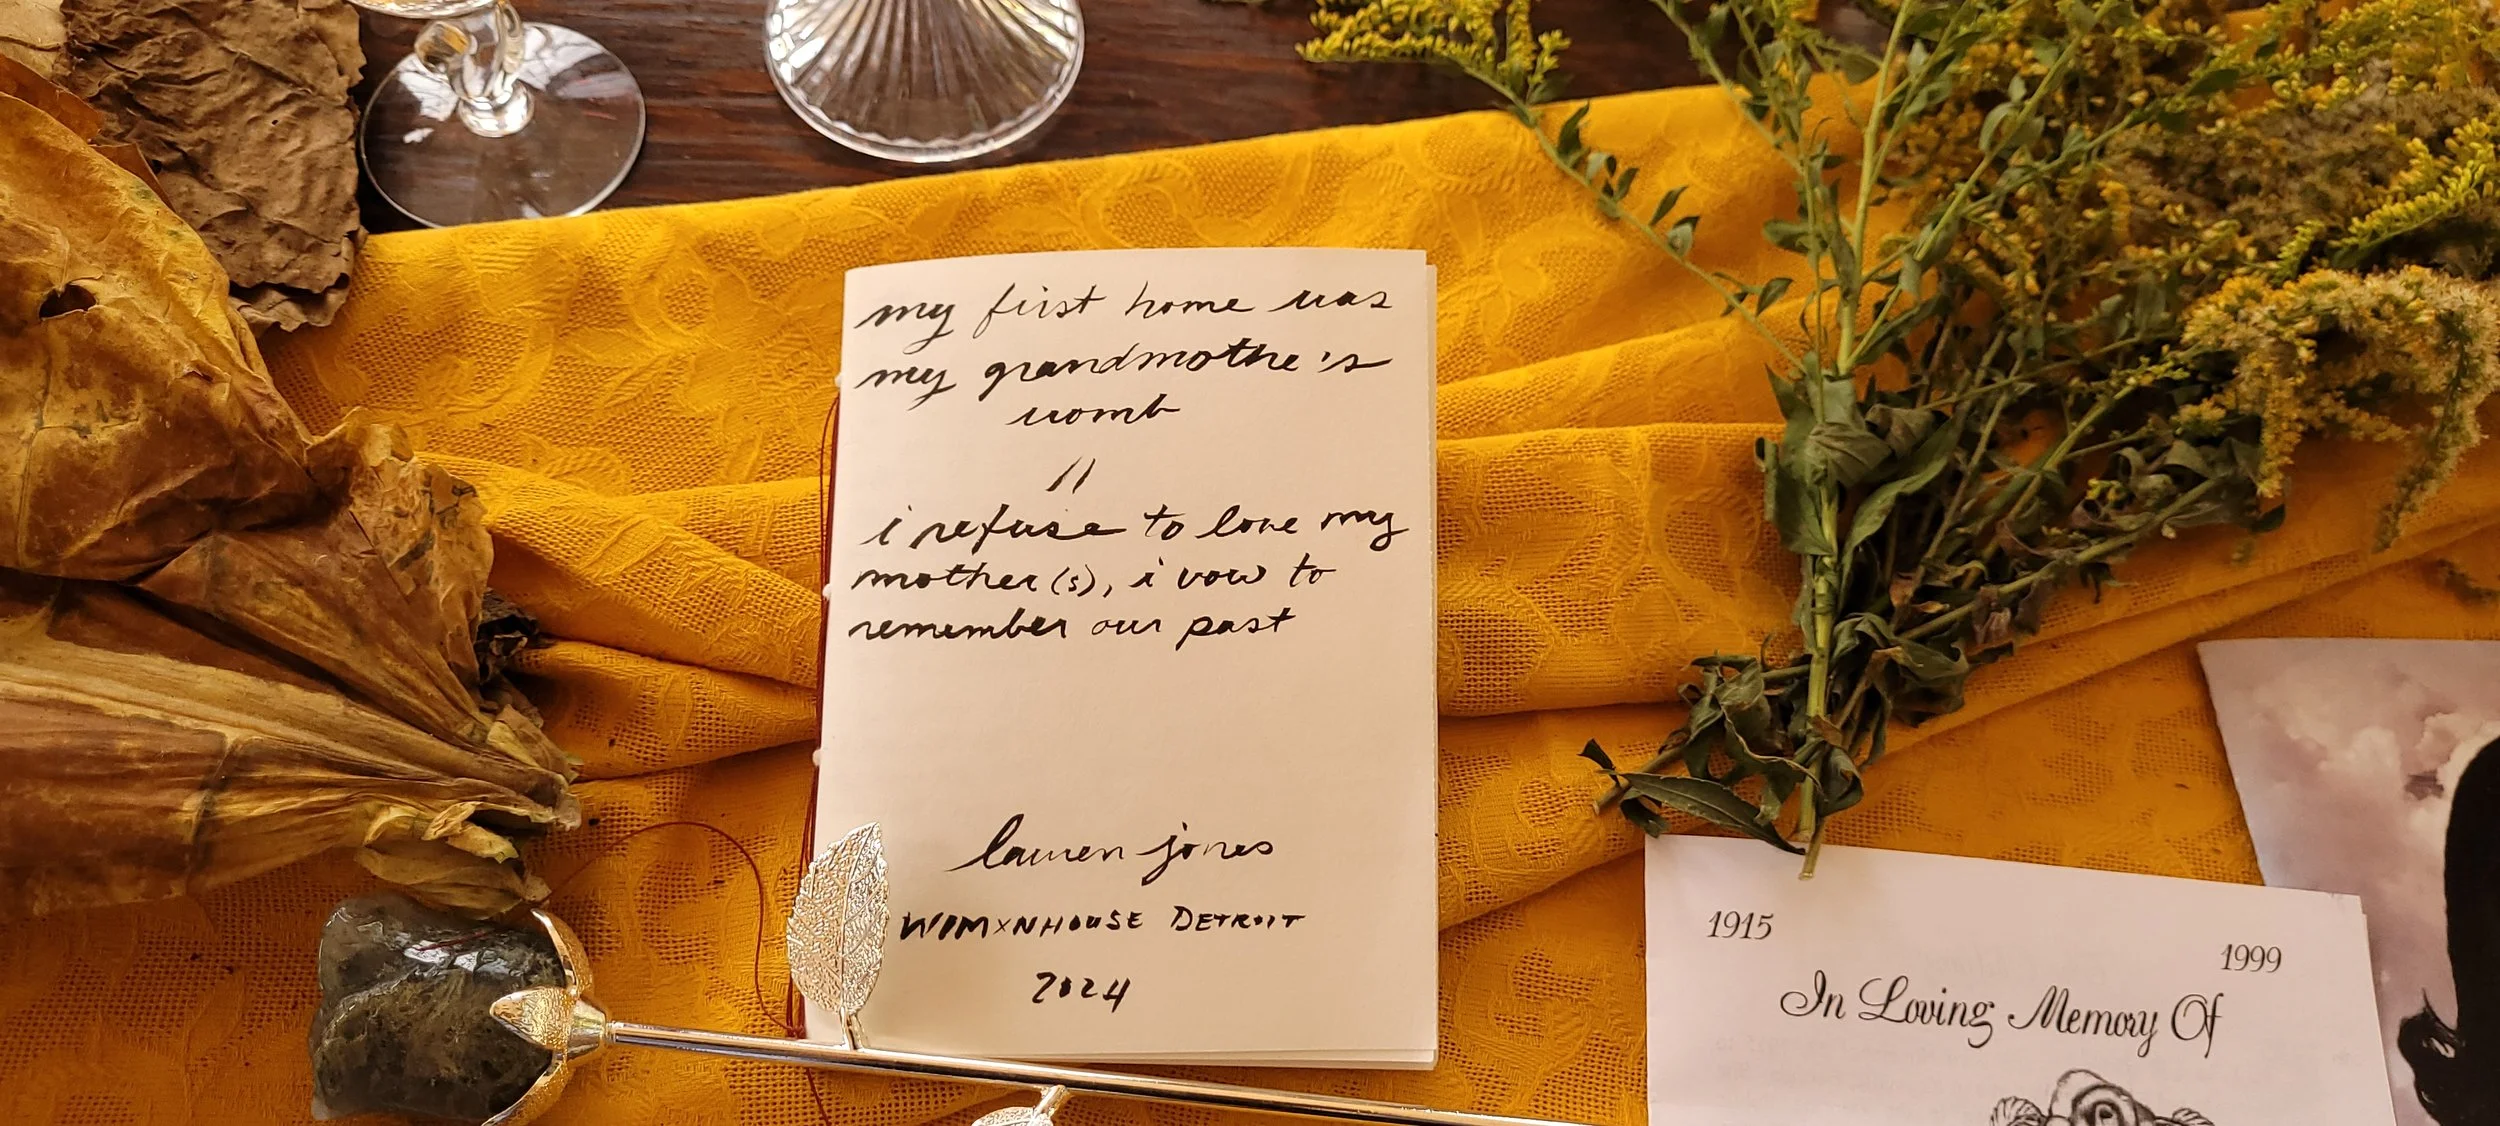 my first home was
my grandmothe's
womb
//
i refuse to lose my
mother(s), i vow to
remember our past
lauren jones
WIMXNHOUSE DETROIT
2024
1915
1999
In Loving Memory Of